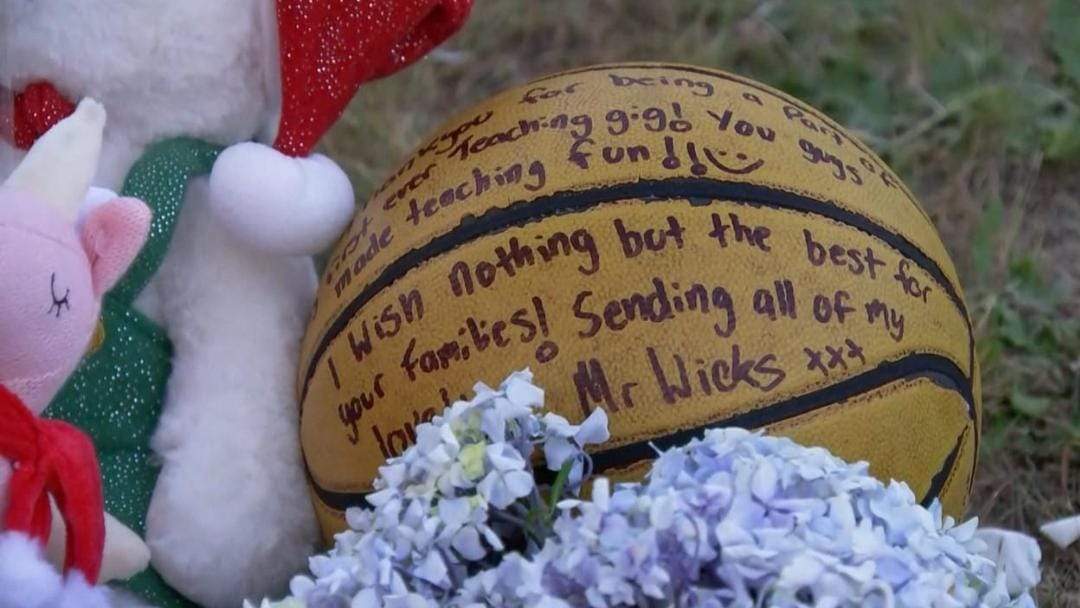 for being a Part of
ever Teaching gig! You guys
made teaching fun!!
I Wish nothing but the best for
your families! Sending all of my
Mr Wicks xxx